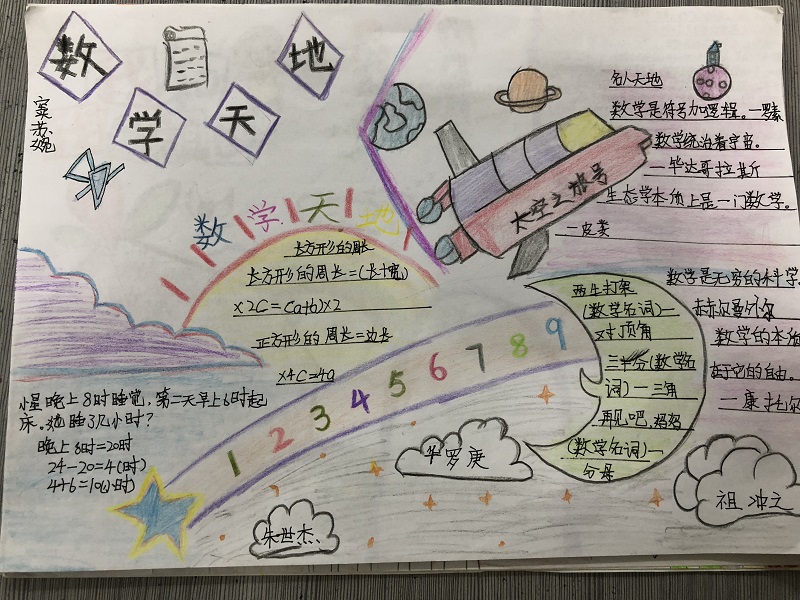 数
学
天
地
数学天地
长方形的周长
长方形的周长=(长+宽)
×2C=(a+b)×2
正方形的周长=边长
×4C=4a
太空之旅号
名人天地
数学是符号加逻辑。一罗素
数学统治着宇宙。
一毕达哥拉斯
生态学本质上是一门数学。
一皮类
数学是无穷的科学。
赫尔曼外尔
数学的本质
在于它的自由。
一康托尔
两牛打架
(数学名词)一
对顶角
三半分(数学名
词)一三角
再见吧,妈妈
(数学名词)一
分母
1 2 3 4 5 6 7 8 9
小星晚上8时睡觉,第二天早上6时起
床。她睡了几小时?
晚上8时=20时
24-20=4(时)
4+6=10(小时)
华罗庚
朱世杰
祖冲之